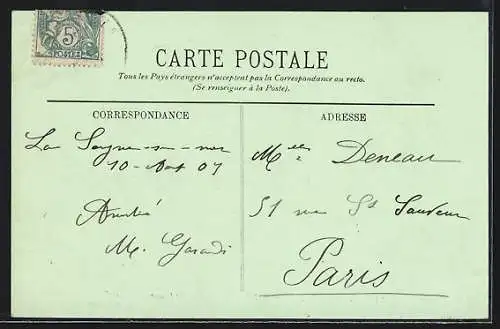 5
POSTES
CARTE POSTALE
Tous les Pays étrangers n'acceptent pas la Correspondance au recto.
(Se renseigner à la Poste).
CORRESPONDANCE
ADRESSE
La Seyne-sur-mer
10-Aout 07
M. 
Melle Deneau
51 rue St Sauveur
Paris